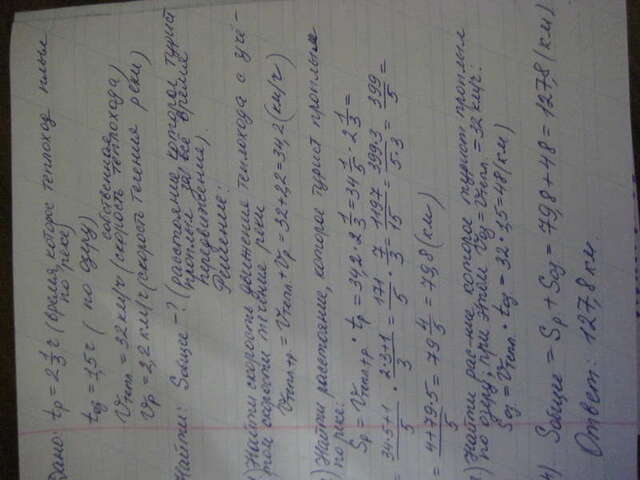 Дано: tр = 2 1/3 ч (время, которое теплоход плыл
по реке)
tоз = 1,5 ч ( по озеру)
собственная
Vтепл. = 32 км/ч (скорость теплохода)
Vр = 2,2 км/ч (скорость течения реки)
Найти: Sобщее - ? (расстояние, которое турист
проплыл за всё время
передвижения).
Решение:
) Найти скорость движения теплохода с учё-
том скорости течение реки
Vтепл+р = Vтепл + Vр = 32 + 2,2 = 34,2 (км/ч)
) Найти расстояние, которое турист проплыл
по реке:
Sр = Vтепл+р · tр = 34,2 · 2 1/3 = 34 1/5 · 2 1/3 =
= (34·5+1)/5 · (2·3+1)/3 = 171/5 · 7/3 = 1197/15 = (399·3)/(5·3) = 399/5 =
= (4+79·5)/5 = 79 4/5 = 79,8 (км)
) Найти рас-ние, которое турист проплыл
по озеру, при этом Vоз = Vтепл. = 32 км/ч.
Sоз = Vтепл · tоз = 32 · 1,5 = 48 (км)
4). Sобщее = Sр + Sоз = 79,8 + 48 = 127,8 (км)
Ответ: 127,8 км.